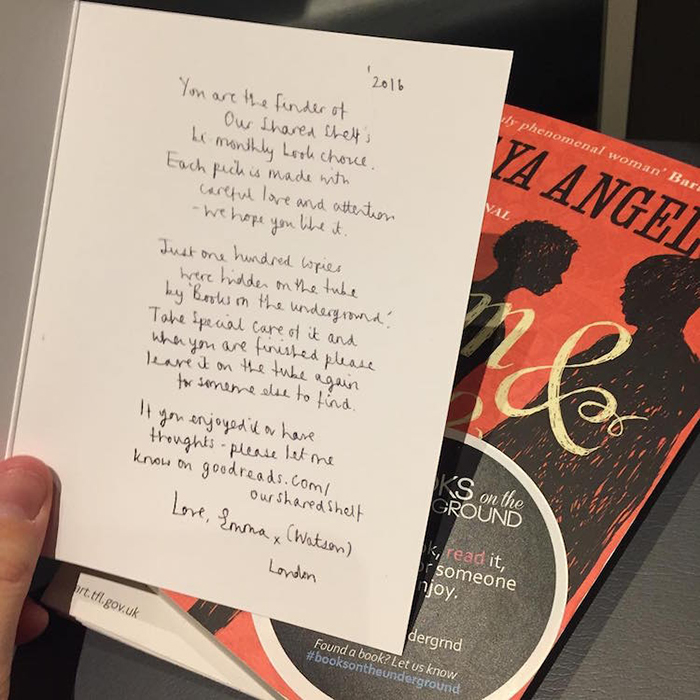 '2016
You are the finder of
Our Shared Shelf's
bi-monthly book choice.
Each pick is made with
careful love and attention
- we hope you like it.
Just one hundred copies
were hidden on the tube
by 'Books on the underground'.
Take special care of it and
when you are finished please
leave it on the tube again
for someone else to find.
If you enjoyed it or have
thoughts - please let me
know on goodreads.com/
oursharedshelf
Love, Emma x (Watson)
London
ly phenomenal woman' Bar
YA ANGEL
NAL
m &
KS on the
GROUND
k, read it,
or someone
njoy.
dergrnd
Found a book? Let us know
#booksontheunderground
art.tfl.gov.uk